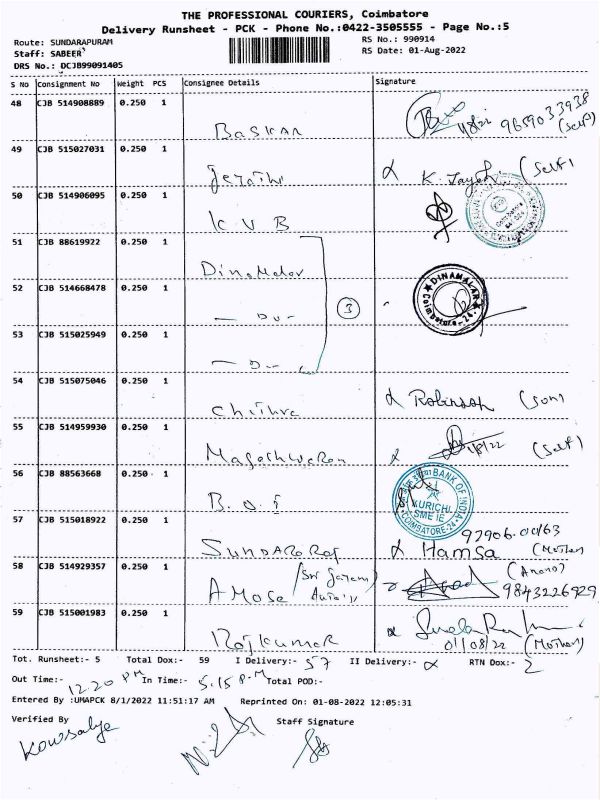 THE PROFESSIONAL COURIERS, Coimbatore
Delivery Runsheet - PCK - Phone No.:0422-3505555 - Page No.:5
Route: SUNDARAPURAM RS No.: 990914
Staff: SABEER RS Date: 01-Aug-2022
DRS No.: DCJB99091405
S No Consignment No Weight PCS Consignee Details Signature
48 CJB 514908889 0.250 1 BASKAR 1/8/22 9659033938 (Self)
49 CJB 515027031 0.250 1 (Self)
50 CJB 514906095 0.250 1 K V B
51 CJB 88619922 0.250 1 Dinamalar
52 CJB 514668478 0.250 1 — Do — 3 DINAMALAR Coimbatore-24.
53 CJB 515025949 0.250 1 — Do —
54 CJB 515075046 0.250 1 Chithra Robinson (Son)
55 CJB 514959930 0.250 1 Mageshwaran 1/8/22 (Self)
56 CJB 88563668 0.250 1 B.O.I BANK OF INDIA KURICHI SME IE COIMBATORE-24
57 CJB 515018922 0.250 1 SUNDARARAJ Hamsa 97906 00163 (Mother)
58 CJB 514929357 0.250 1 AMOSE 9843226929
59 CJB 515001983 0.250 1 Rajkumar 01/08/22 (Mother)
Tot. Runsheet:- 5 Total Dox:- 59 I Delivery:- 57 II Delivery:- RTN Dox:- 2
Out Time:- 12.20 PM In Time:- 5.15 P.M Total POD:-
Entered By :UMAPCK 8/1/2022 11:51:17 AM Reprinted On: 01-08-2022 12:05:31
Verified By Staff Signature
Kowsalya